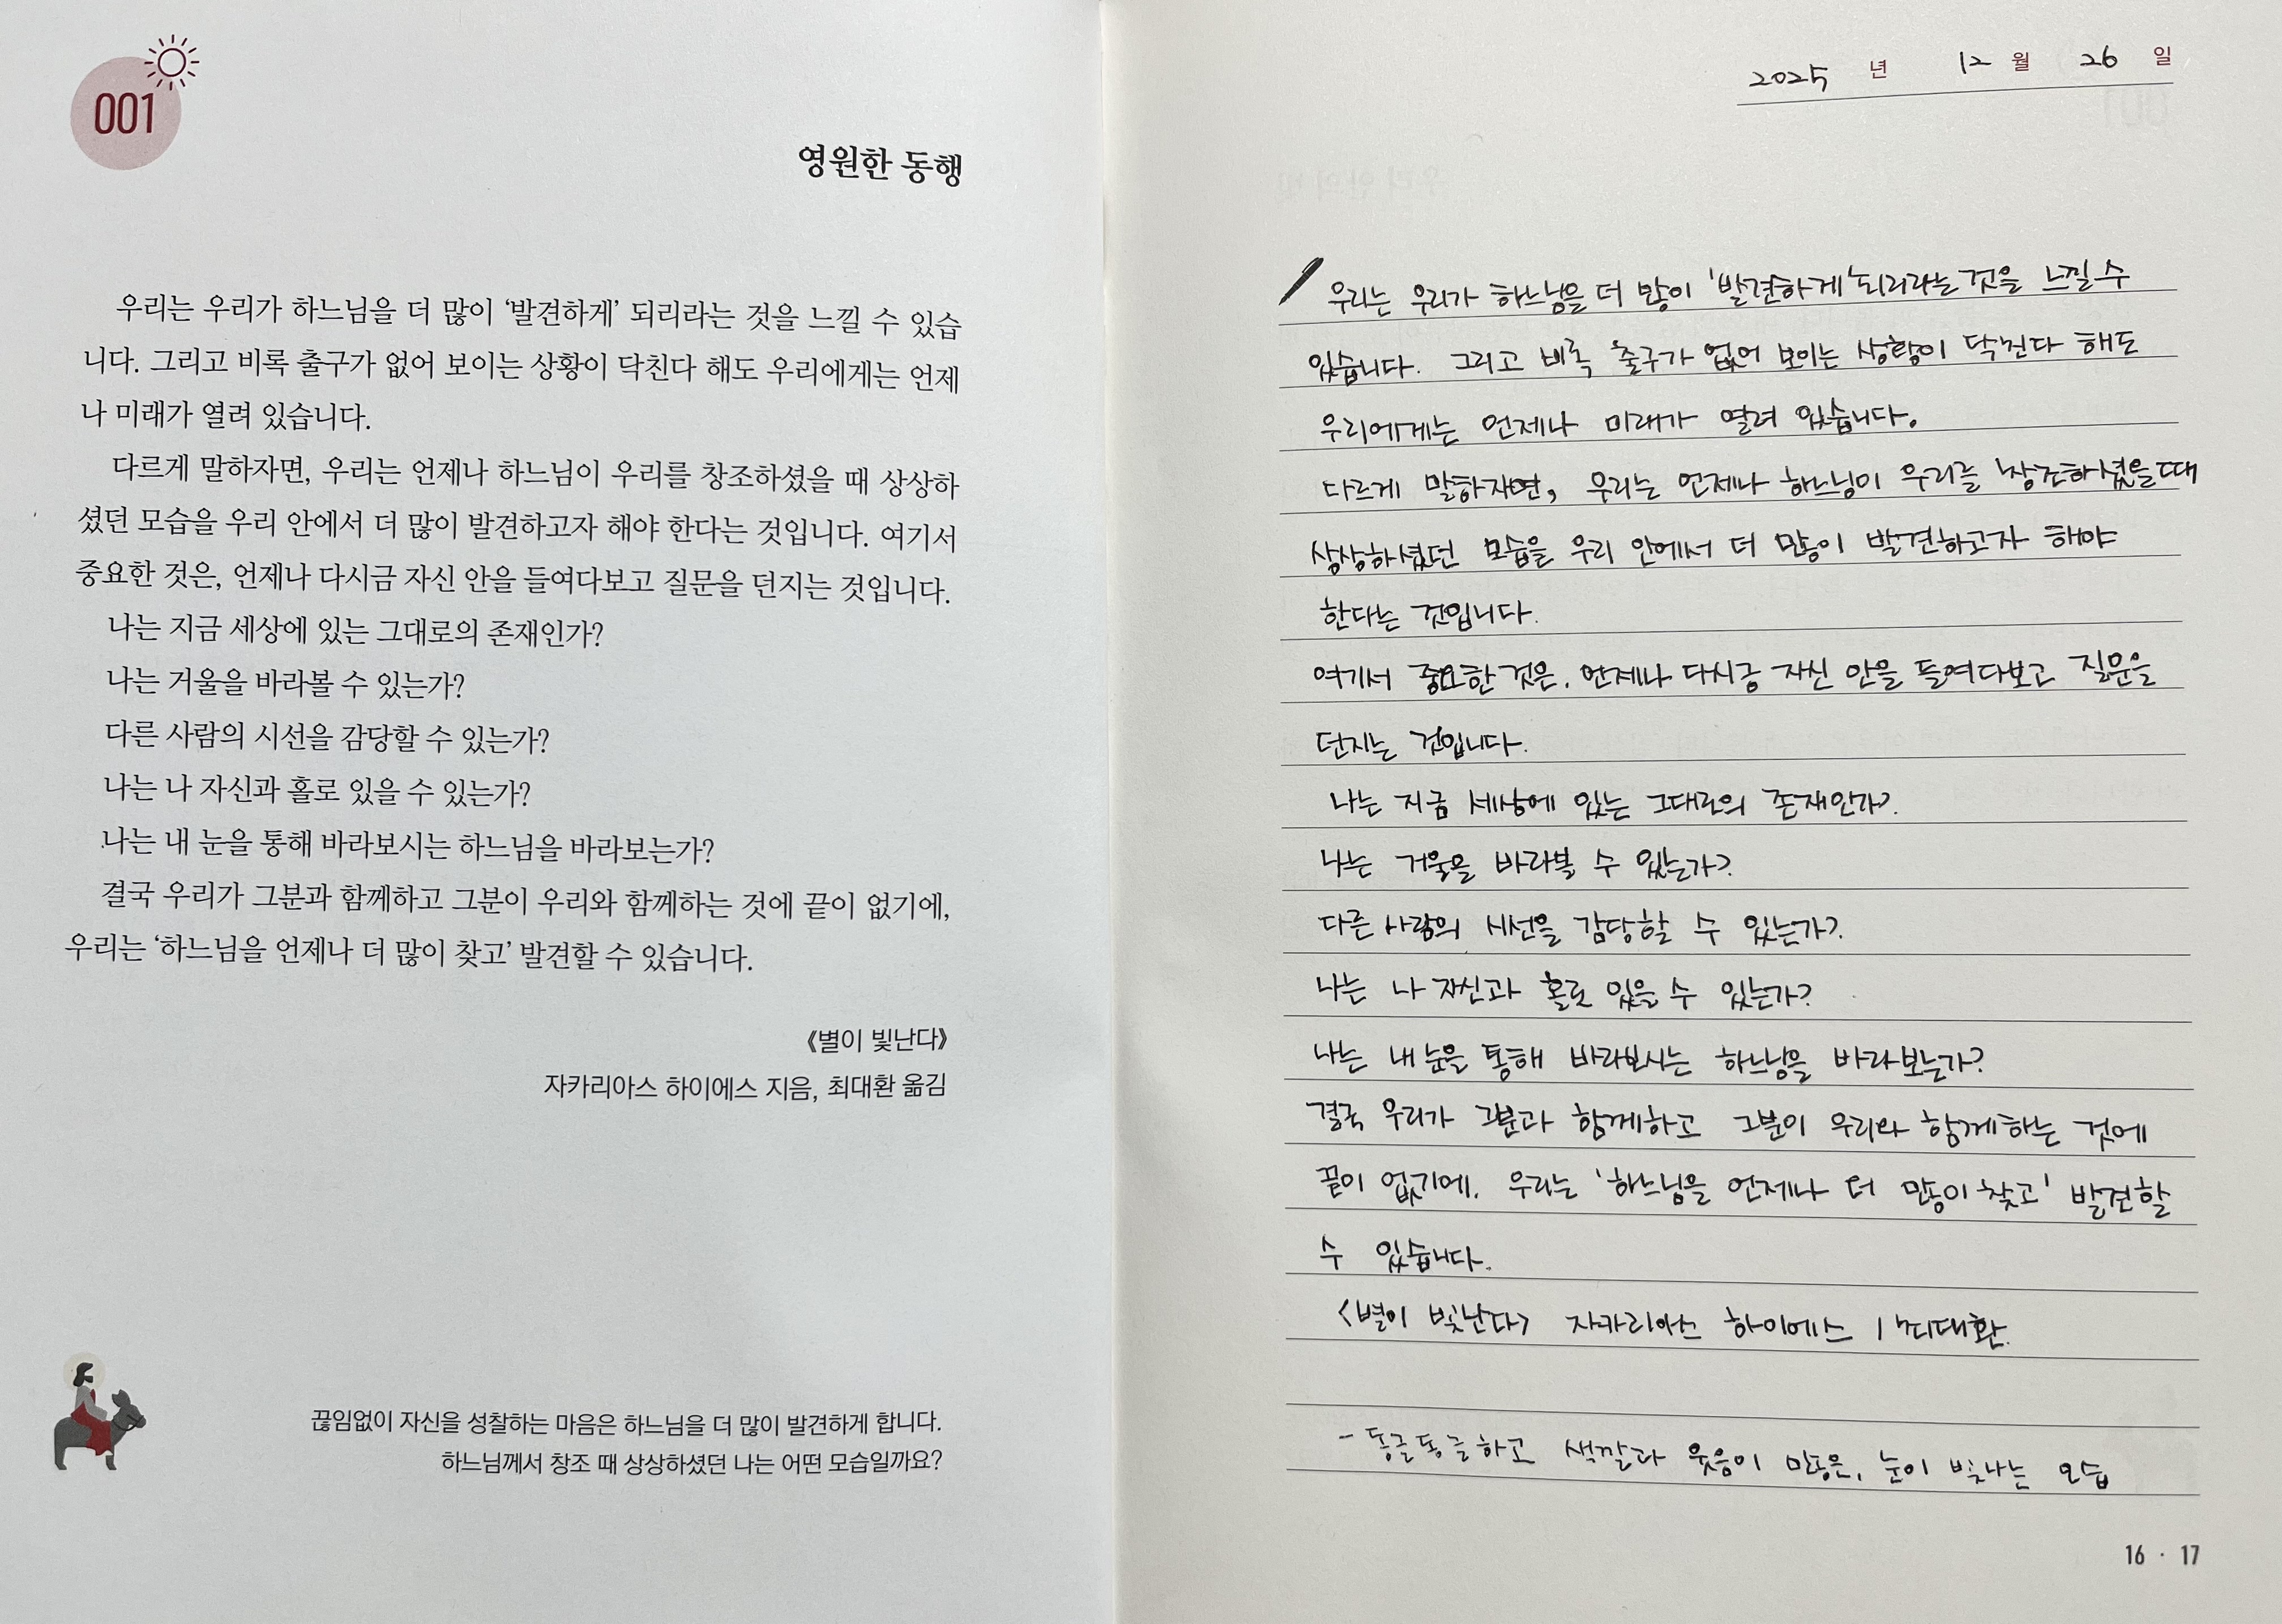 001
영원한 동행
우리는 우리가 하느님을 더 많이 ‘발견하게’ 되리라는 것을 느낄 수 있습
니다. 그리고 비록 출구가 없어 보이는 상황이 닥친다 해도 우리에게는 언제
나 미래가 열려 있습니다.
다르게 말하자면, 우리는 언제나 하느님이 우리를 창조하셨을 때 상상하
셨던 모습을 우리 안에서 더 많이 발견하고자 해야 한다는 것입니다. 여기서
중요한 것은, 언제나 다시금 자신 안을 들여다보고 질문을 던지는 것입니다.
나는 지금 세상에 있는 그대로의 존재인가?
나는 거울을 바라볼 수 있는가?
다른 사람의 시선을 감당할 수 있는가?
나는 나 자신과 홀로 있을 수 있는가?
나는 내 눈을 통해 바라보시는 하느님을 바라보는가?
결국 우리가 그분과 함께하고 그분이 우리와 함께하는 것에 끝이 없기에,
우리는 ‘하느님을 언제나 더 많이 찾고’ 발견할 수 있습니다.
《별이 빛난다》
자카리아스 하이에스 지음, 최대환 옮김
끊임없이 자신을 성찰하는 마음은 하느님을 더 많이 발견하게 합니다.
하느님께서 창조 때 상상하셨던 나는 어떤 모습일까요?
2025 년 12 월 26 일
우리는 우리가 하느님을 더 많이 '발견하게' 되리라는 것을 느낄 수
있습니다. 그리고 비록 출구가 없어 보이는 상황이 닥친다 해도
우리에게는 언제나 미래가 열려 있습니다.
다르게 말하자면, 우리는 언제나 하느님이 우리를 창조하셨을 때
상상하셨던 모습을 우리 안에서 더 많이 발견하고자 해야
한다는 것입니다.
여기서 중요한 것은, 언제나 다시금 자신 안을 들여다보고 질문을
던지는 것입니다.
나는 지금 세상에 있는 그대로의 존재인가?
나는 거울을 바라볼 수 있는가?
다른 사람의 시선을 감당할 수 있는가?
나는 나 자신과 홀로 있을 수 있는가?
나는 내 눈을 통해 바라보시는 하느님을 바라보는가?
결국 우리가 그분과 함께하고 그분이 우리와 함께하는 것에
끝이 없기에, 우리는 '하느님을 언제나 더 많이 찾고' 발견할
수 있습니다.
<별이 빛난다> 자카리아스 하이에스 / 최대환.
- 동글동글하고 색깔과 웃음이 많은, 눈이 빛나는 모습
16 · 17